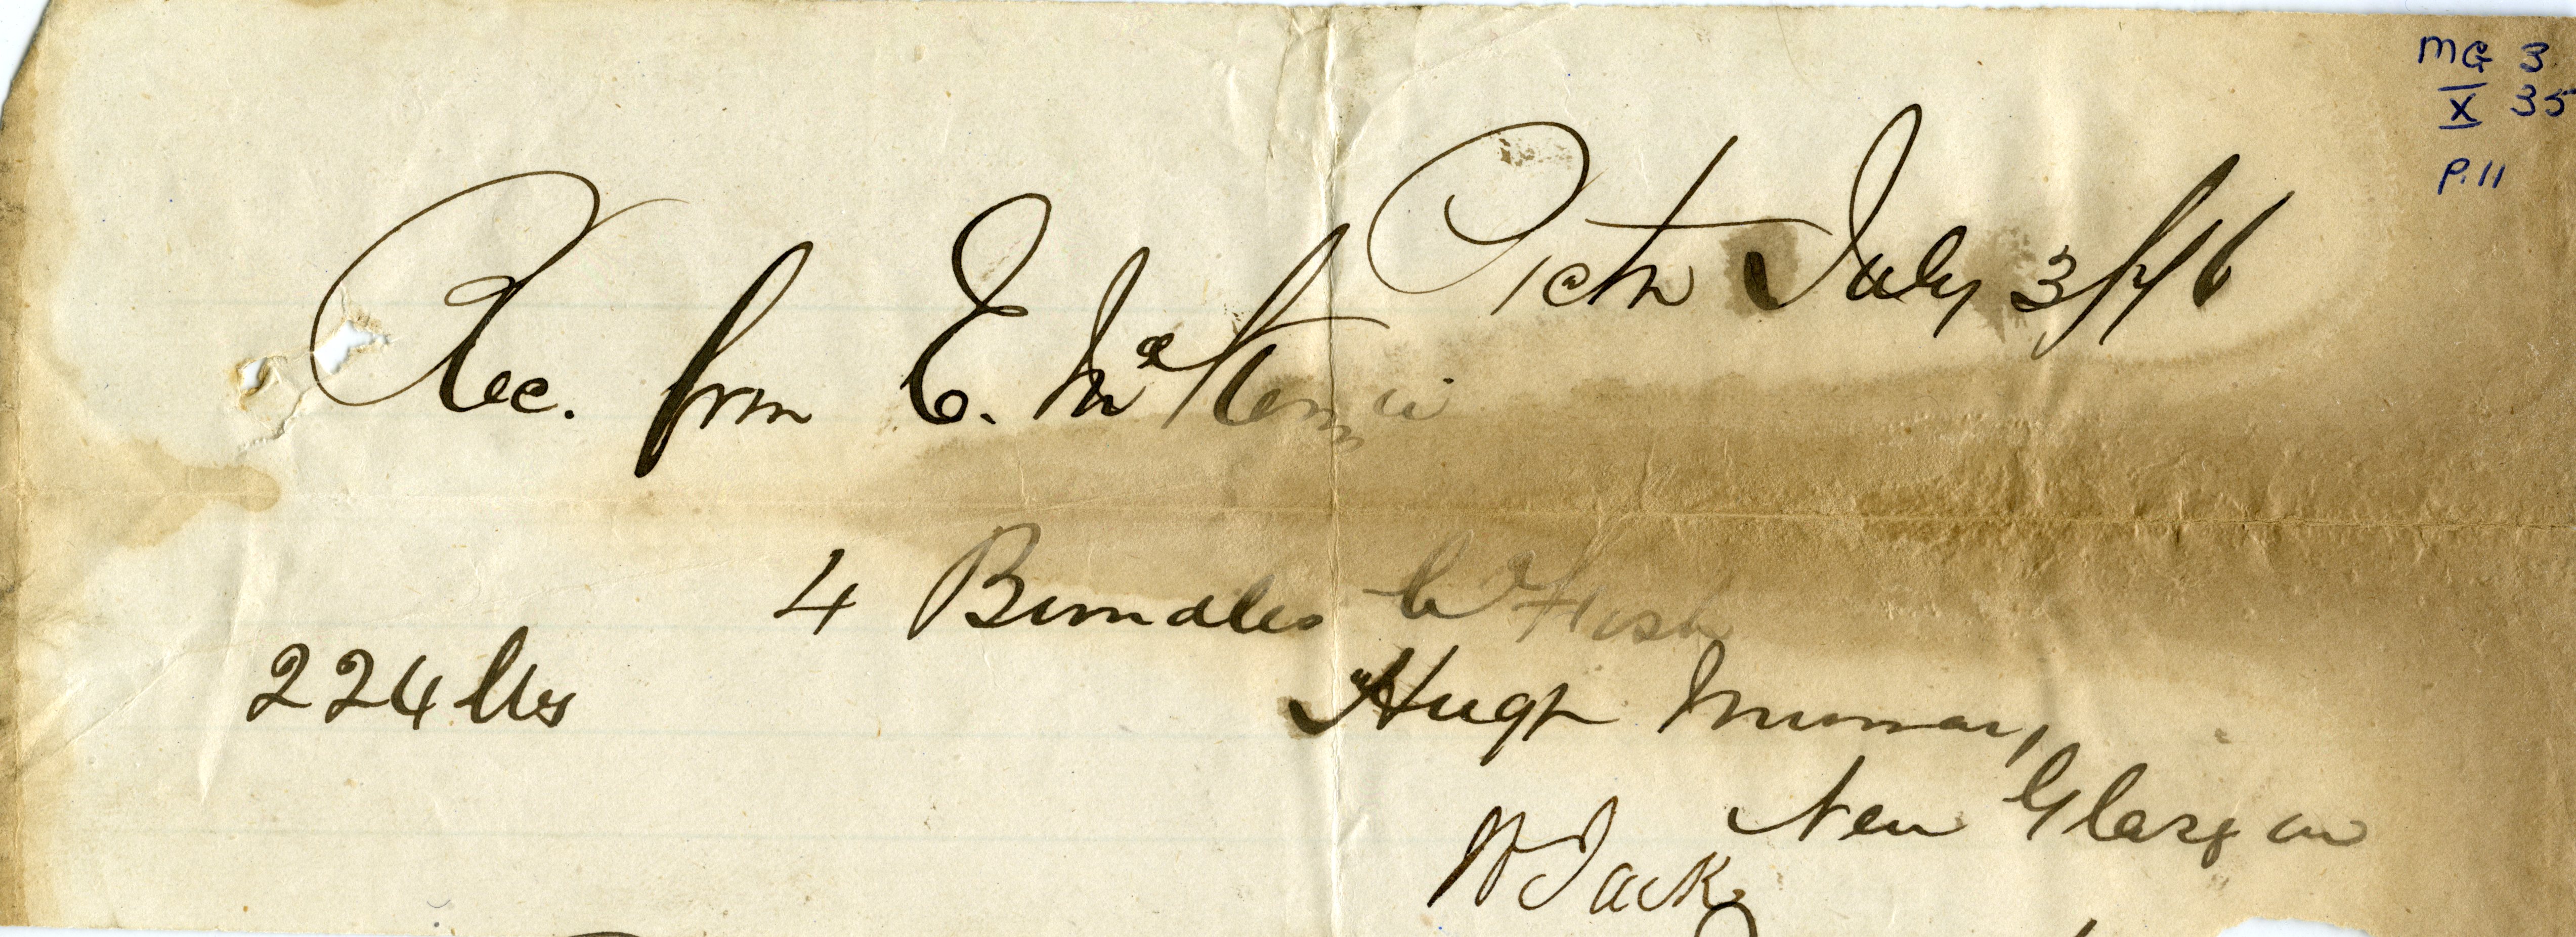 MG 3
X 35
P.11
Pictou July 3/76
Rec. from E. McKenzie
4 Bundles Cd Fish
224 lbs
Hugh Murray
New Glasgow
W Jack